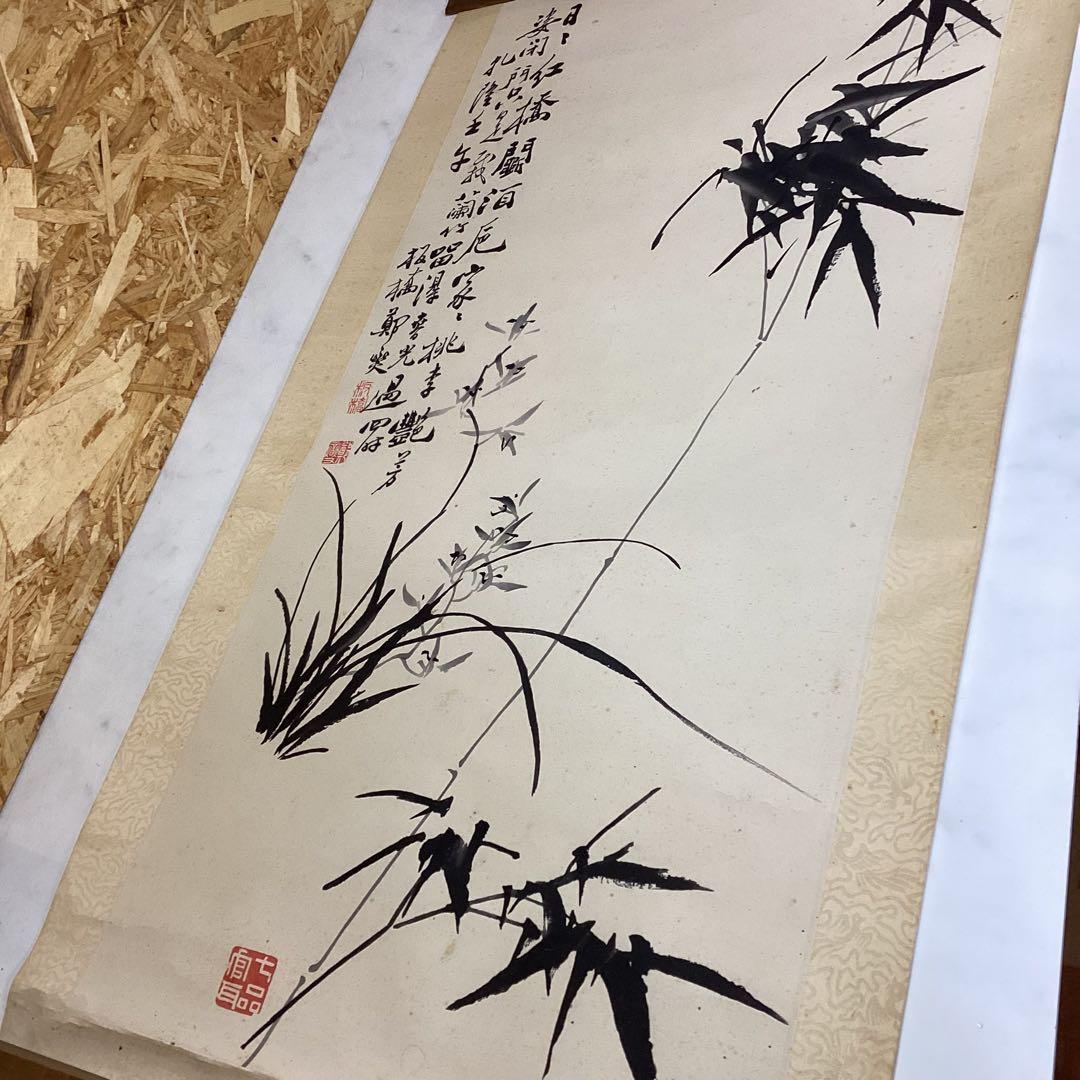 日〻紅橋鬭酒卮家〻桃李艷芳
姿閉門只是栽蘭竹留淂春光過四時
乾隆壬午板橋鄭燮
板橋
七品官耳